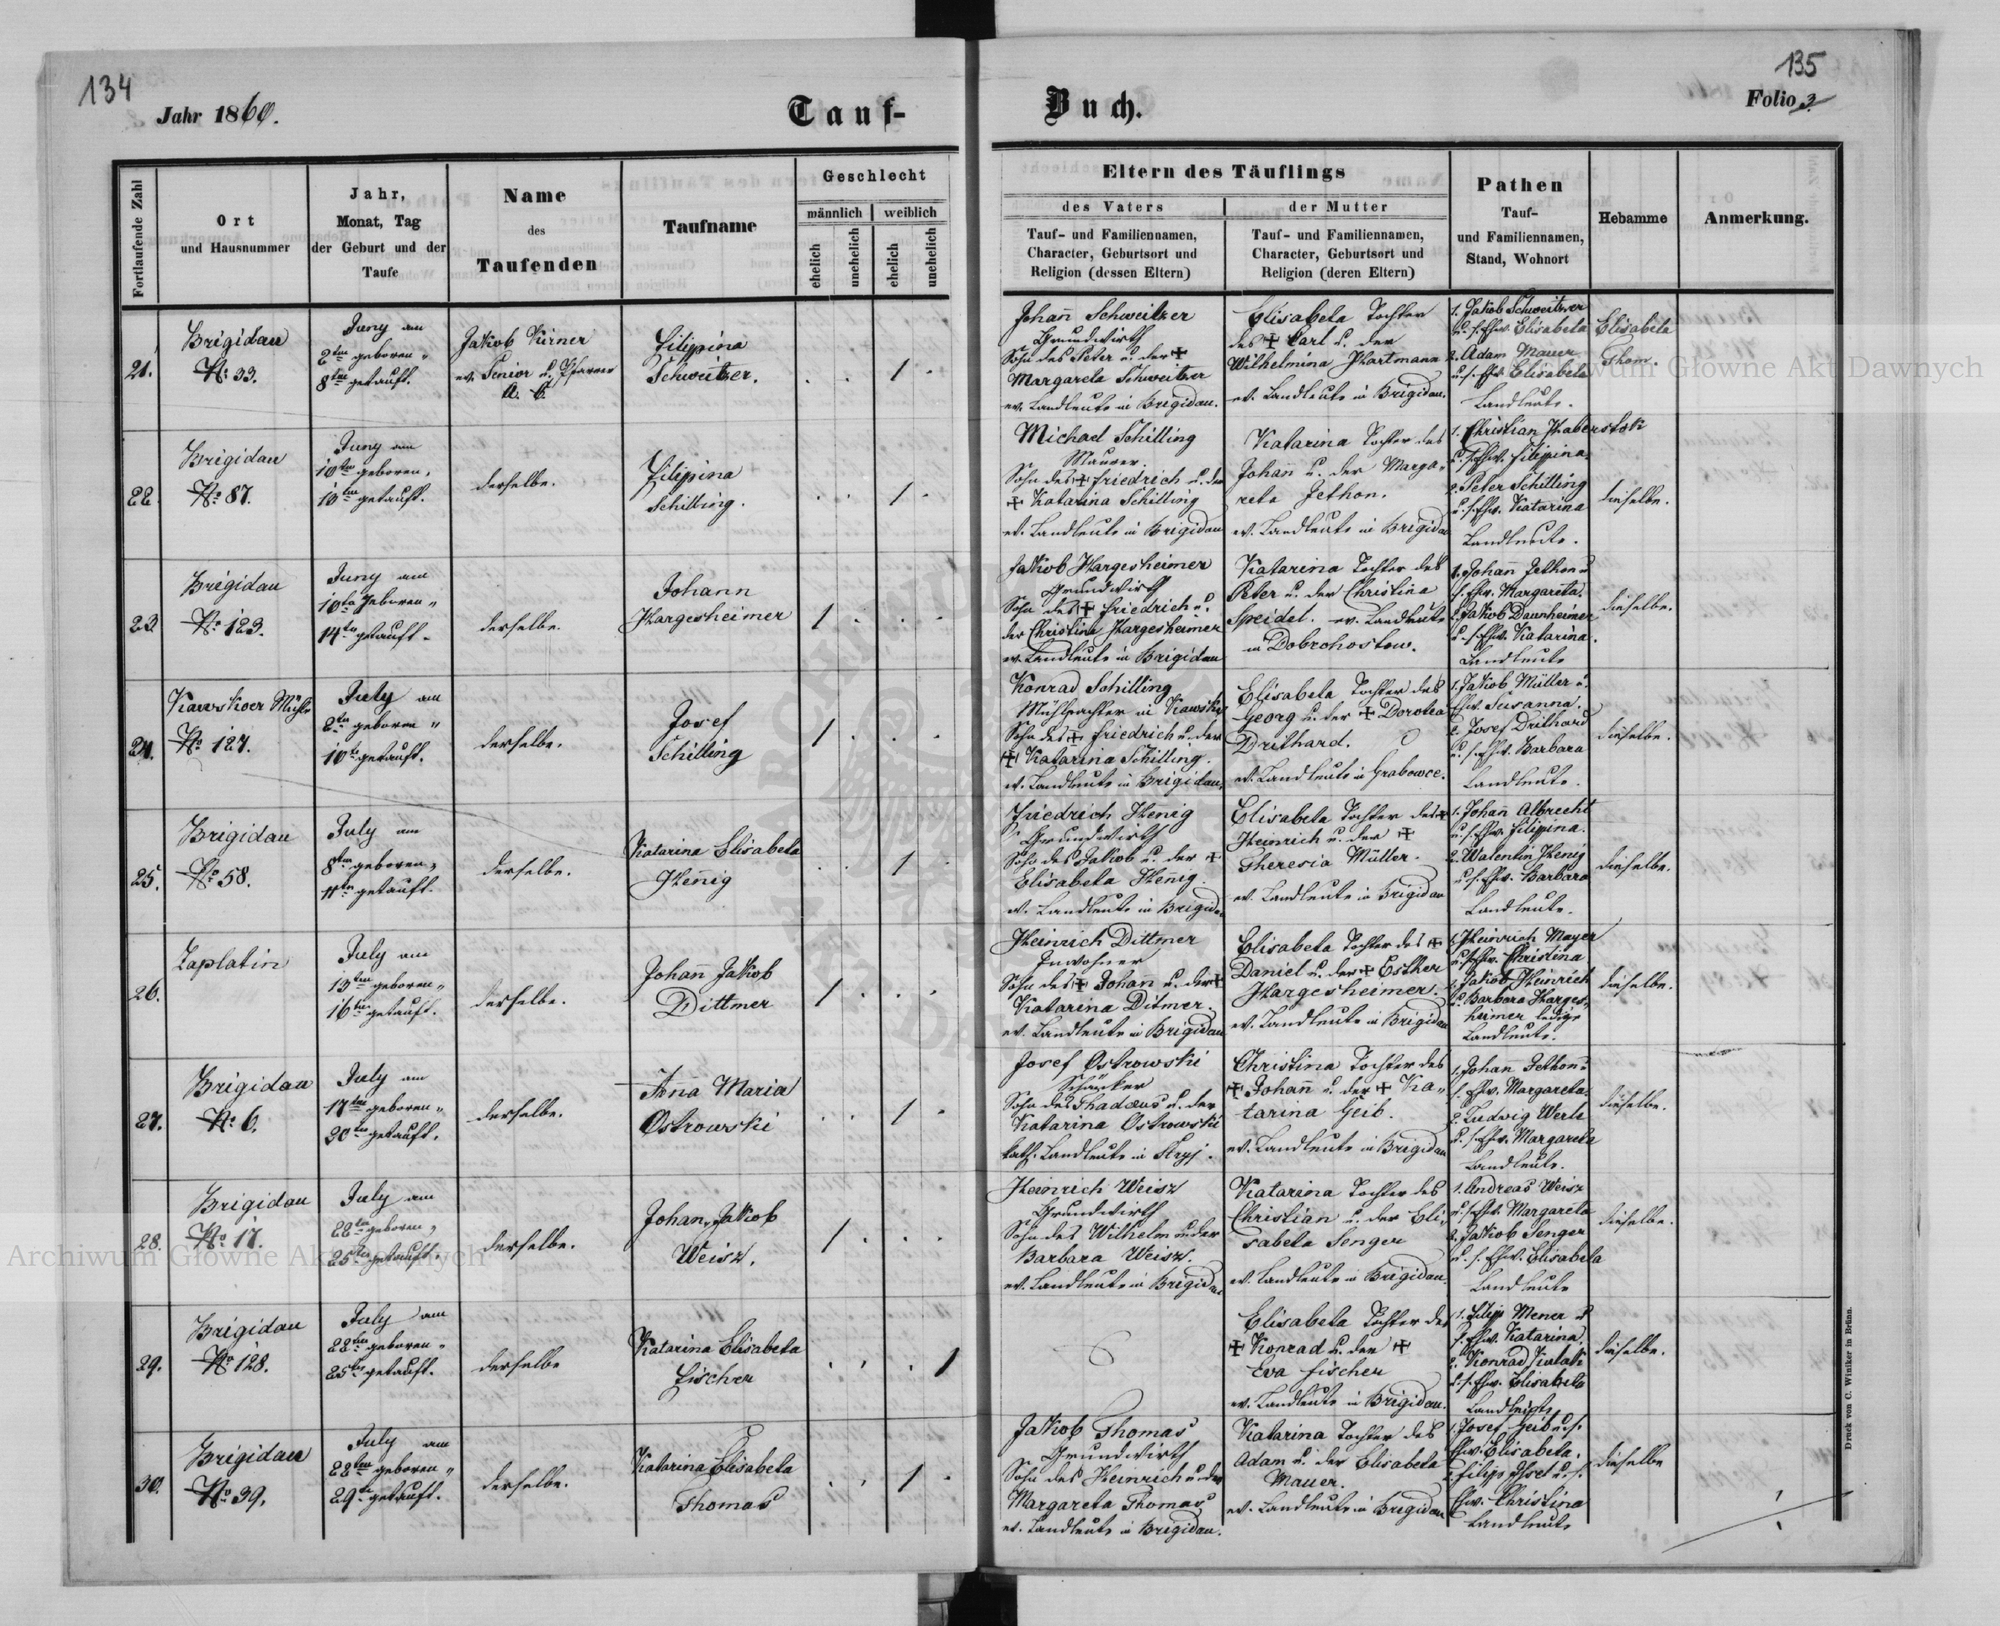 134
Jahr 1860.
Tauf-
Buch.
135
Folio 3.
Fortlaufende Zahl
Ort
und Hausnummer
Jahr,
Monat, Tag
der Geburt und der
Taufe
Name
des
Taufenden
Taufname
Geschlecht
männlich
weiblich
ehelich
unehelich
ehelich
unehelich
Eltern des Täuflings
des Vaters
Tauf- und Familiennamen,
Character, Geburtsort und
Religion (dessen Eltern)
der Mutter
Tauf- und Familiennamen,
Character, Geburtsort und
Religion (deren Eltern)
Pathen
Tauf-
und Familiennamen,
Stand, Wohnort
Hebamme
Anmerkung.
21.
Brigidau
No 33.
Juny am
2ten geboren "
8ten getauft.
Jakob Kürner
ev. Senior u. Pfarrer
A. C.
Filippina
Schweitzer.
1
Johañ Schweitzer
Grundwirth
Sohn des Peter u. der ✠
Margareta Schweitzer
ev. Landleute in Brigidau.
Elisabeta Tochter
des ✠ Carl u. der
Wilhelmina Hartmann
ev. Landleute in Brigidau.
1. Jakob Schweitzer
u. s. Ehw. Elisabeta
2. Adam Mauer
u. s. Ehw. Elisabeta
Landleute.
Elisabeta
22.
Brigidau
No 87.
Juny am
10ten geboren.
13ten getauft.
derselbe.
Filippina
Schilling.
1
Michael Schilling
Maurer.
Sohn des ✠ Friedrich u. der
✠ Katarina Schilling
ev. Landleute in Brigidau
Katarina Tochter des
Johañ u. der Marga-
reta Jethon.
ev. Landleute in Brigidau
1. Christian Haberstok
u. s. Ehw. Filippina.
2. Peter Schilling
u. s. Ehw. Katarina
Landleute.
dieselbe.
23
Brigidau
No 123.
Juny am
10ten geboren "
14ten getauft.
derselbe.
Johann
Hargesheimer
1
Jakob Hargesheimer
Grundwirth
Sohn des ✠ Friedrich u.
der Christina Hargesheimer
ev. Landleute in Brigidau
Katarina Tochter des
Peter u. der Christina
Speidel. ev. Landleute
in Dobrohostow.
1. Johañ Jethon u
s. Ehw. Margareta.
2. Jakob Daunheimer
u. s. Ehw. Katarina.
Landleute
dieselbe.
24.
Kawskoer Mühle
No 127.
July am
2ten geboren "
10ten getauft.
derselbe.
Josef
Schilling
1
Konrad Schilling
Mühlpachter in Kawsko
Sohn des ✠ Friedrich u. der
✠ Katarina Schilling.
ev. Landleute in Brigidau.
Elisabeta Tochter des
Georg u. der ✠ Dorotea
Drithard.
ev. Landleute in Grabowce.
1. Jakob Müller u.
Ehw. Susanna.
2. Josef Drithard
u. s. Ehw. Barbara
Landleute.
dieselbe.
25.
Brigidau
No 58.
July am
8ten geboren "
11ten getauft.
derselbe.
Katarina Elisabeta
Heñig
1
Friedrich Heñig
Grundwirth
Sohn des Jakob u. der ✠
Elisabeta Heñig.
ev. Landleute in Brigidau
Elisabeta Tochter des ✠
Heinrich u. der ✠
Theresia Müller.
ev. Landleute in Brigidau
1. Johañ Albrecht
u. s. Ehw. Filippina.
2. Walentin Henig
u. s. Ehw. Barbara
Landleute.
dieselbe.
26.
Zaplatin
July am
13ten geboren "
16ten getauft.
derselbe.
Johañ Jakob
Dittmer
1
Heinrich Dittmer
Inwohner
Sohn des ✠ Johañ u. der ✠
Katarina Ditmer.
ev. Landleute in Brigidau
Elisabeta Tochter des ✠
Daniel u. der ✠ Esther
Hargesheimer.
ev. Landleute in Brigidau
1. Heinrich Mayer
u. s. Ehw. Christina
2. Jakob Heinrich
u. Barbara Harges-
heimer ledige
Landleute.
dieselbe.
27.
Brigidau
No 6.
July am
17ten geboren "
20ten getauft.
derselbe.
Aña Maria
Ostrowski
1
Josef Ostrowski
Schänker
Sohn des Thadæus u. der
Katarina Ostrowski
kath. Landleute in Stryj.
Christina Tochter des
✠ Johañ u. der ✠ Ka-
tarina Geib.
ev. Landleute in Brigidau
1. Johañ Jethon u
s. Ehw. Margareta.
2. Ludwig Werle
u. s. Ehw. Margareta
Landleute.
dieselbe.
28.
Brigidau
No 17.
July am
22ten geboren "
25ten getauft.
derselbe.
Johan, Jakob
Weisz.
1
Heinrich Weisz
Grundwirth
Sohn des Wilhelm u. der
Barbara Weisz.
ev. Landleute in Brigidau
Katarina Tochter des
Christian u. der Eli-
sabeta Senger
ev. Landleute in Brigidau.
1. Andreas Weisz
u. s. Ehw. Margareta
2. Jakob Senger
u. s. Ehw. Elisabeta
Landleute
dieselbe.
29.
Brigidau
No 128.
July am
22ten geboren "
25ten getauft.
derselbe
Katarina Elisabeta
Fischer
1
Elisabeta Tochter des
✠ Konrad u. der ✠
Eva Fischer
ev. Landleute in Brigidau.
1. Filip Mener u
s. Ehw. Katarina.
2. Konrad
u. s. Ehw. Elisabeta
Landleute
dieselbe.
30.
Brigidau
No 39.
July am
22ten geboren "
29ten getauft.
derselbe.
Katarina Elisabeta
Thomas
1
Jakob Thomas
Grundwirth
Sohn des Heinrich u. der
Margareta Thomas
ev. Landleute in Brigidau.
Katarina Tochter des
Adam u. der Elisabeta
Mauer.
ev. Landleute in Brigidau
1. Josef Geib u. s.
Ehw. Elisabeta.
2. Filip u. s.
Ehw. Christina
Landleute
dieselbe
Druck von C. Winiker in Brünn.
Archiwum Głowne Akt Dawnych
Archiwum Głowne Akt Dawnych